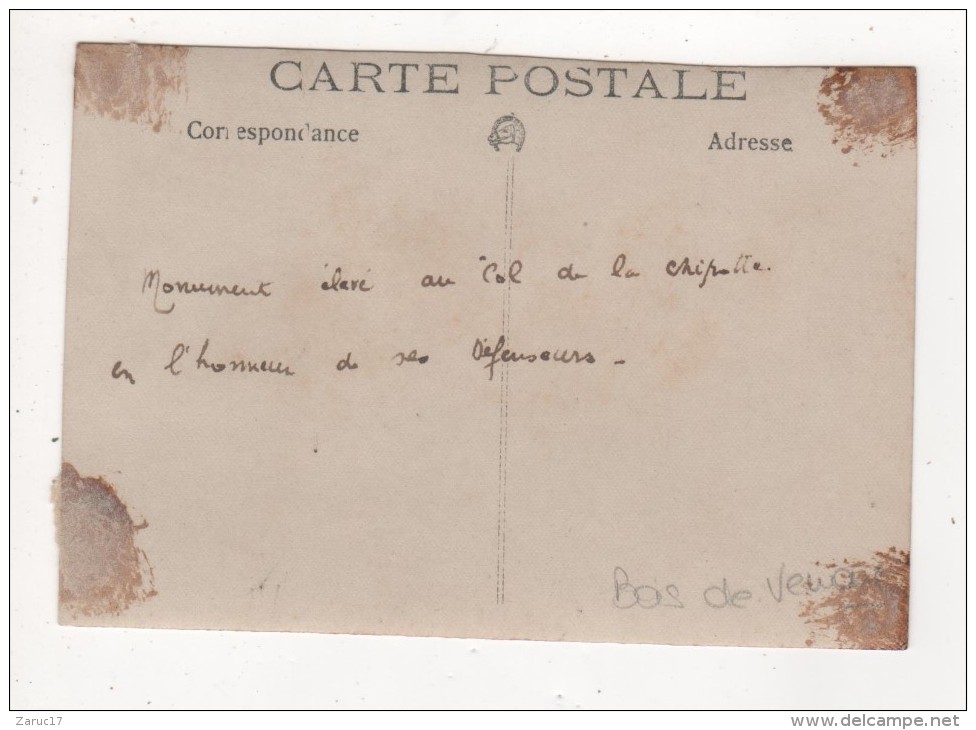 CARTE POSTALE
Correspondance
Adresse
Monument élevé au Col de la Chipotte.
en l'honneur de ses Défenseurs -
Bois de
Zaruc17
www.delcampe.net